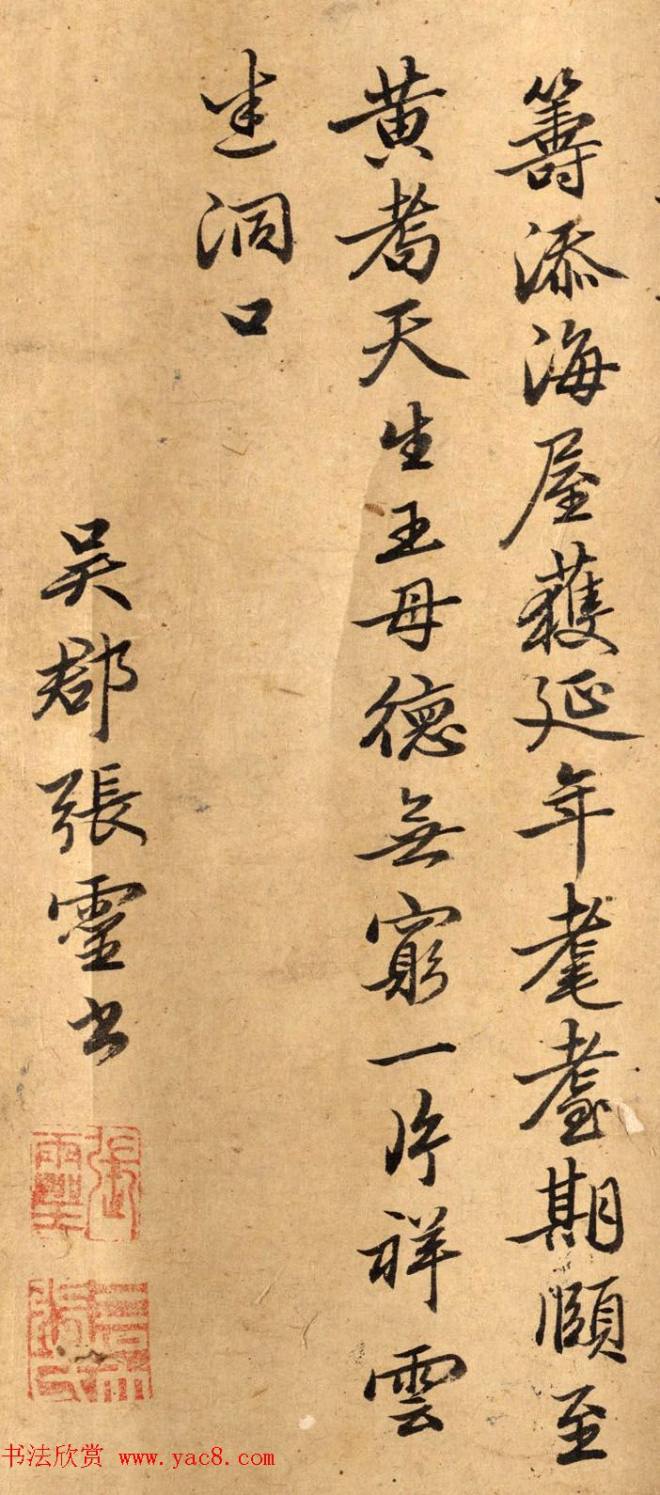 籌添海屋獲延年耄耋期頤至
黄耇天生王母德無窮一片祥雲
迷洞口
吳郡張靈書
張靈
书法欣赏 www.yac8.com